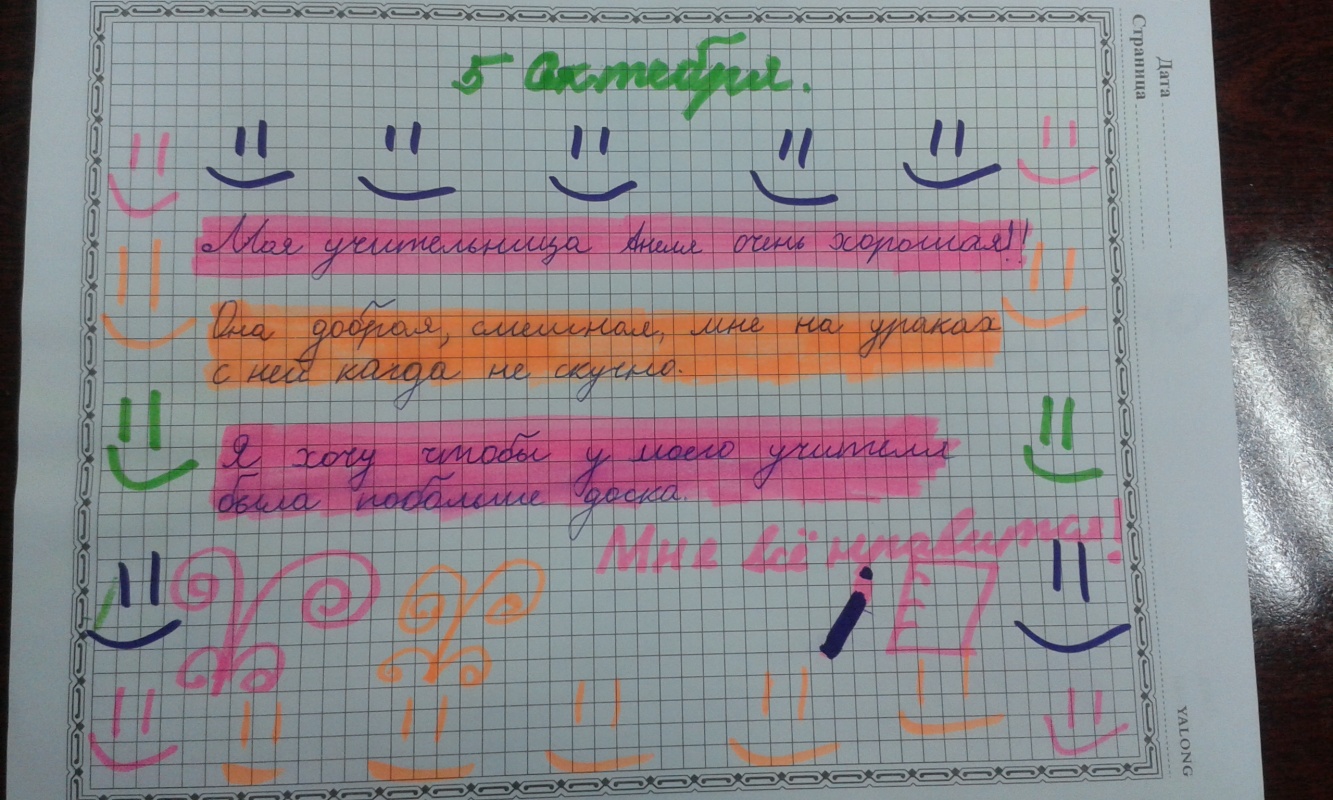 5 Октября.
Моя учительница Анеля очень хорошая!!
Она добрая, смешная, мне на ураках
с ней кагда не скучно.
Я хочу чтобы у моего учителя
была побольше доска.
Мне всё нравится!
Дата
Страница
YALONG